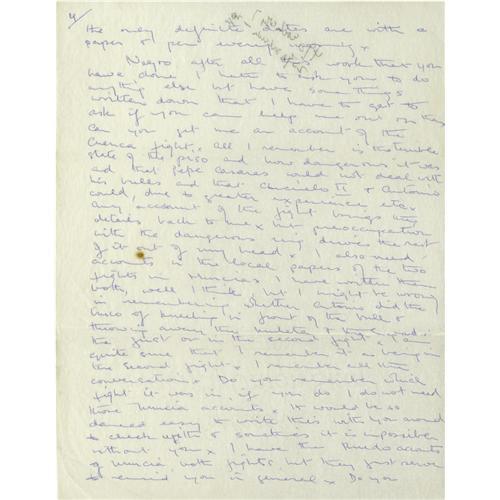 4/
the only definite dates are with a
paper & pen evening
Negro after all this work that you
have done I hate to ask you to do
anything else but have some things
written down that I have to get to
ask if you can help me out on them
Can you get me an account of the
Cuenca fight. All I remember is the terrible
state of the piso and how dangerous it was
and that Pepe Casares could not deal with
his bulls and that Chicuelo II & Antonio
could, due to greater experience etc.
Any account of the fight brings the
details back to me x but preoccupation
with the dangerous ring drives the rest
of it out of my head x I also need
accounts in the local papers of the two
fights in Murcia x I have written them
both, well I think, but I might be wrong
in remembering whether Antonio did the
truco of kneeling in front of the bull &
throwing away the muleta & the
the first or in the second fight x I am
quite sure that I remember it as being in
the second fight x I remember all the
conversations x Do you remember which
fight it was in, if you do I do not need
those Murcia accounts x It would be so
damned easy to write this with you around
to check with & sometimes it is impossible
without you x I have the Ruedo accounts
of Murcia, both fights, but they just serve
to remind you in general x Do you